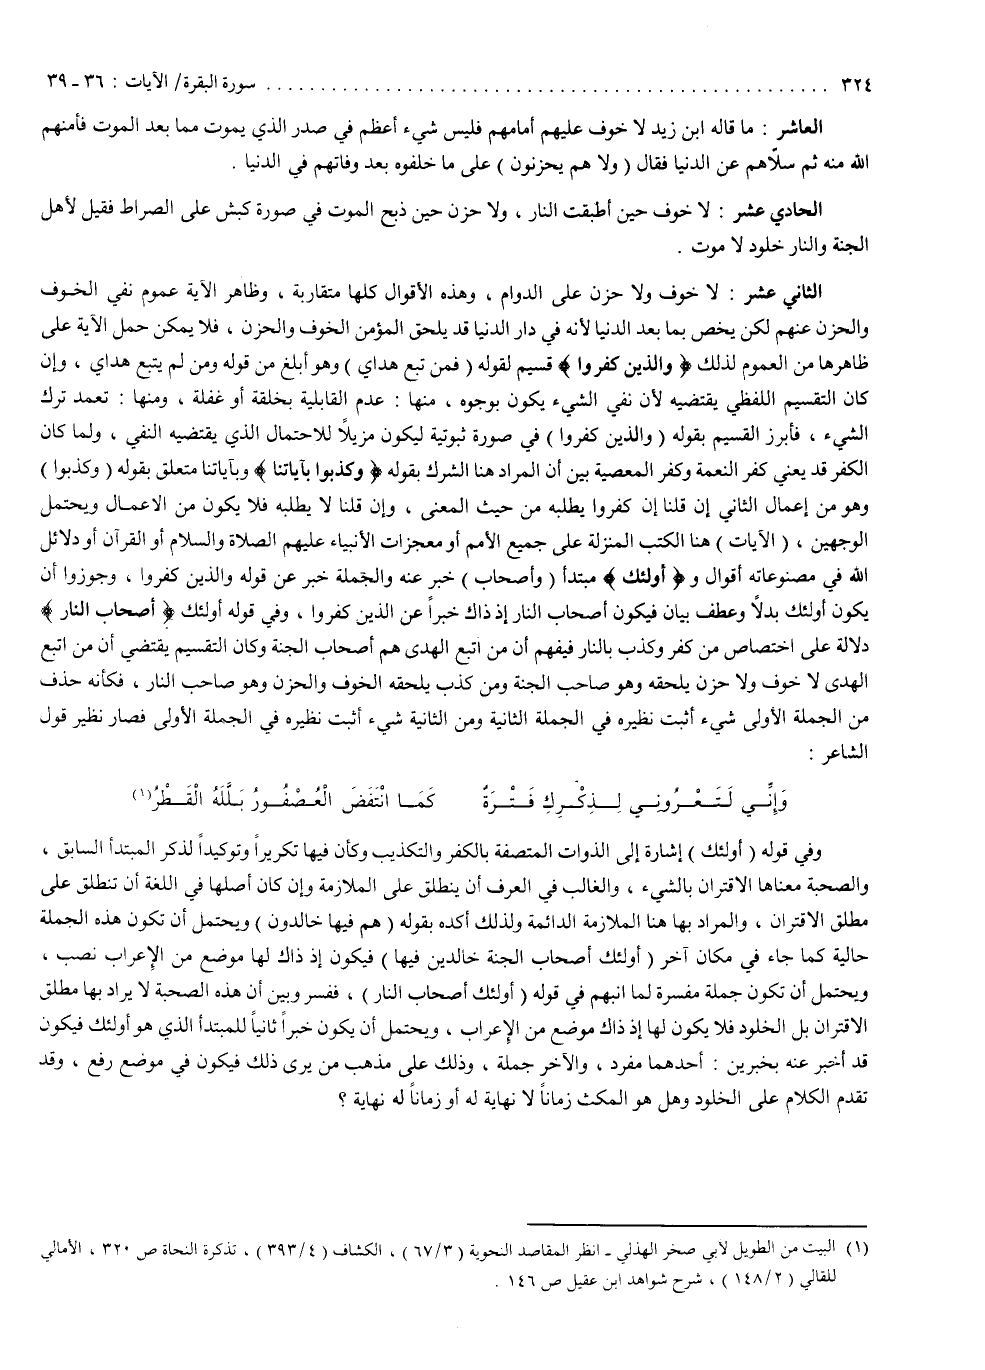 ٣٢٤ ........................................................ سورة البقرة/ الآيات : ٣٦ ـ ٣٩
العاشر : ما قاله ابن زيد لا خوف عليهم أمامهم فليس شيء أعظم في صدر الذي يموت مما بعد الموت فأمنهم
الله منه ثم سلّاهم عن الدنيا فقال ( ولا هم يحزنون ) على ما خلفوه بعد وفاتهم في الدنيا .
الحادي عشر : لا خوف حين أطبقت النار ، ولا حزن حين ذبح الموت في صورة كبش على الصراط فقيل لأهل
الجنة والنار خلود لا موت .
الثاني عشر : لا خوف ولا حزن على الدوام ، وهذه الأقوال كلها متقاربة ، وظاهر الآية عموم نفي الخـوف
والحزن عنهم لكن يخص بما بعد الدنيا لأنه في دار الدنيا قد يلحق المؤمن الخوف والحزن ، فلا يمكن حمل الآية على
ظاهرها من العموم لذلك ﴿ والذين كفروا ﴾ قسيم لقوله ( فمن تبع هداي ) وهو أبلغ من قوله ومن لم يتبع هداي ، وإن
كان التقسيم اللفظي يقتضيه لأن نفي الشيء يكون بوجوه ، منها : عدم القابلية بخلقة أو غفلة ، ومنها : تعمد ترك
الشيء ، فأبرز القسيم بقوله ( والذين كفروا ) في صورة ثبوتية ليكون مزيلاً للاحتمال الذي يقتضيه النفي ، ولما كان
الكفر قد يعني كفر النعمة وكفر المعصية بين أن المراد هنا الشرك بقوله ﴿ وكذبوا بآياتنا ﴾ وبآياتنا متعلق بقوله ( وكذبوا )
وهو من إعمال الثاني إن قلنا إن كفروا يطلبه من حيث المعنى ، وإن قلنا لا يطلبه فلا يكون من الاعمـال ويحتمل
الوجهين ، ( الآيات ) هنا الكتب المنزلة على جميع الأمم أو معجزات الأنبياء عليهم الصلاة والسلام أو القرآن أو دلائل
الله في مصنوعاته أقوال و ﴿ أولئك ﴾ مبتدأ ( وأصحاب ) خبر عنه والجملة خبر عن قوله والذين كفروا ، وجوزوا أن
يكون أولئك بدلاً وعطف بيان فيكون أصحاب النار إذ ذاك خبراً عن الذين كفروا ، وفي قوله أولئك ﴿ أصحاب النار ﴾
دلالة على اختصاص من كفر وكذب بالنار فيفهم أن من اتبع الهدى هم أصحاب الجنة وكان التقسيم يقتضي أن من اتبع
الهدى لا خوف ولا حزن يلحقه وهو صاحب الجنة ومن كذب يلحقه الخوف والحزن وهو صاحب النار ، فكأنه حذف
من الجملة الأولى شيء أثبت نظيره في الجملة الثانية ومن الثانية شيء أثبت نظيره في الجملة الأولى فصار نظير قول
الشاعر :
وَإِنِّـي لَتَـعْـرُونـي لِـذِكْـركِ فَـتْـرَةٌ كَمَـا انْتَفَضَ الْعُـصْفُـورُ بَـلَّلَهُ الْقَـطْرُ(١)
وفي قوله ( أولئك ) إشارة إلى الذوات المتصفة بالكفر والتكذيب وكأن فيها تكريراً وتوكيداً لذكر المبتدأ السابق ،
والصحبة معناها الاقتران بالشيء ، والغالب في العرف أن ينطلق على الملازمة وإن كان أصلها في اللغة أن تنطلق على
مطلق الاقتران ، والمراد بها هنا الملازمة الدائمة ولذلك أكده بقوله ( هم فيها خالدون ) ويحتمل أن تكون هذه الجملة
حالية كما جاء في مكان آخر ( أولئك أصحاب الجنة خالدين فيها ) فيكون إذ ذاك لها موضع من الإعراب نصب ،
ويحتمل أن تكون جملة مفسرة لما انبهم في قوله ( أولئك أصحاب النار ) ، ففسر وبين أن هذه الصحبة لا يراد بها مطلق
الاقتران بل الخلود فلا يكون لها إذ ذاك موضع من الإعراب ، ويحتمل أن يكون خبراً ثانياً للمبتدأ الذي هو أولئك فيكون
قد أخبر عنه بخبرين : أحدهما مفرد ، والآخر جملة ، وذلك على مذهب من يرى ذلك فيكون في موضع رفع ، وقد
تقدم الكلام على الخلود وهل هو المكث زماناً لا نهاية له أو زماناً له نهاية ؟
(١) البيت من الطويل لأبي صخر الهذلي ـ انظر المقاصد النحوية ( ٦٧/٣ ) ، الكشاف ( ٣٩٣/٤ ) ، تذكرة النحاة ص ٣٢٠ ، الأمالي
للقالي ( ١٤٨/٢ ) ، شرح شواهد ابن عقيل ص ١٤٦ .